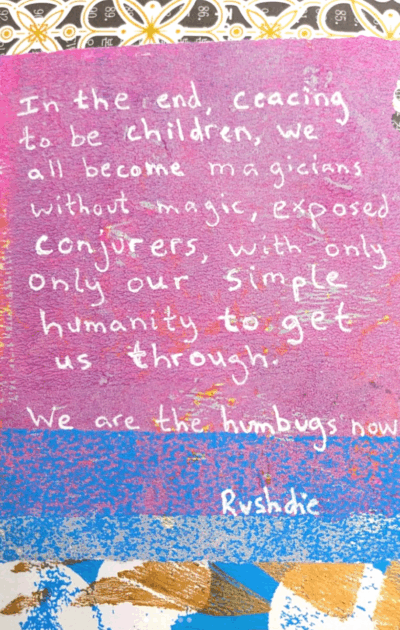 In the end, ceacing
to be children, we
all become magicians
without magic, exposed
conjurers, with only
only our simple
humanity to get
us through.
We are the humbugs now
Rushdie